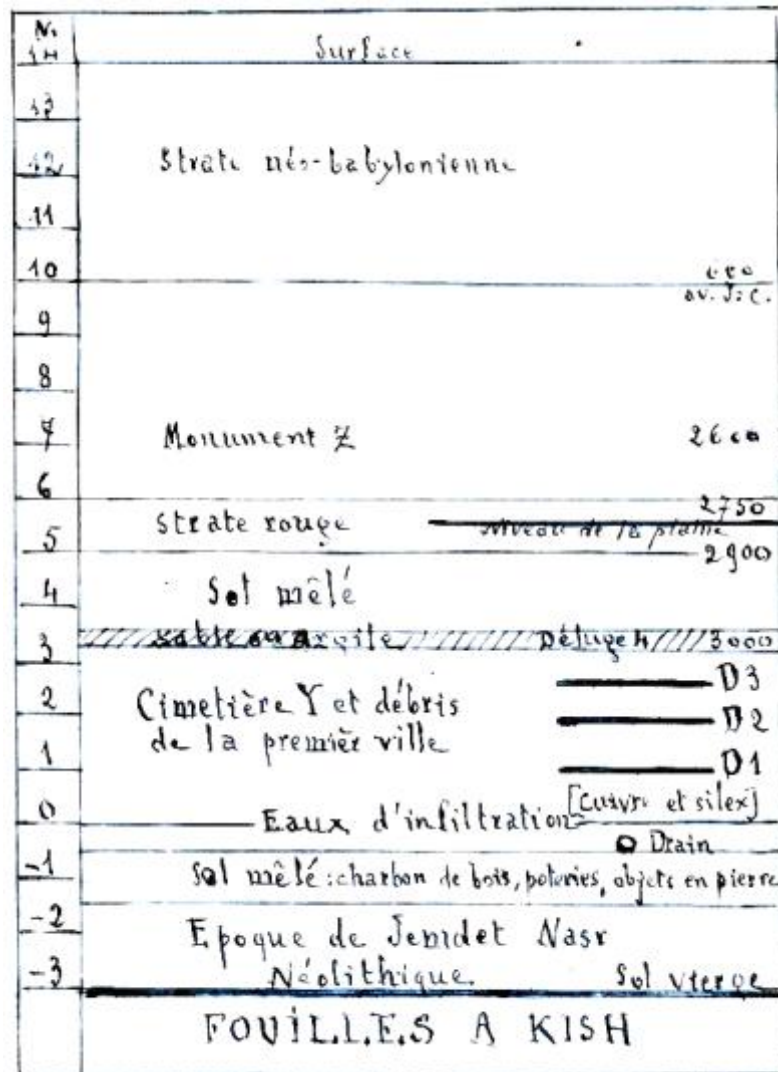 Surface
14
13
Strate néo-babylonienne
12
11
10
av. J.-C.
9
8
7 Monument Z 2600
6
2750
Strate rouge niveau de la plaine
5 2900
4 Sol mêlé
sable ou argile Déluge 4 3000
3
D3
2 Cimetière Y et débris D2
de la premièr ville
1 D1
[Cuivre et silex]
0 Eaux d'infiltration
Drain
-1
Sol mêlé : charbon de bois, poteries, objets en pierre
-2 Epoque de Jemdet Nasr
-3 Néolithique. Sol vierge
FOUiL.L.E.S A KISH